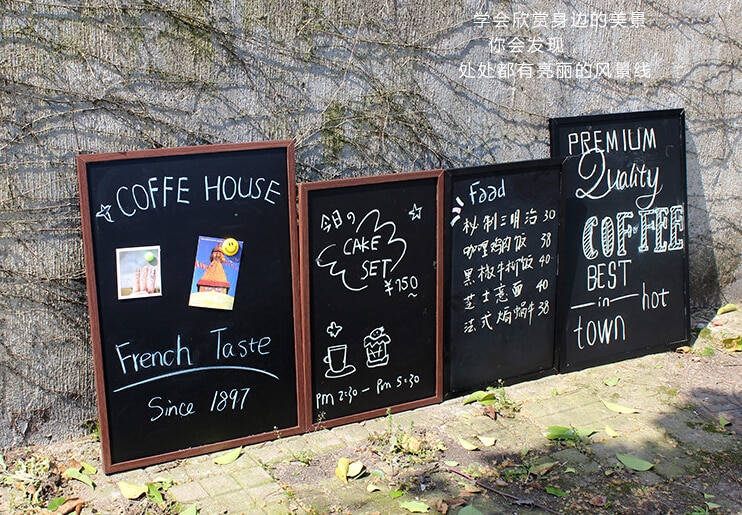 学会欣赏身边的美景
你会发现
处处都有亮丽的风景线
COFFE HOUSE
French Taste
Since 1897
今日の
CAKE
SET
¥750
~
pm 2:30 - pm 5:30
Food
秘制三明治 30
咖喱鸡肉饭 38
黑椒牛柳饭 40
芝士意面 40
法式焗蜗牛 38
PREMIUM
Quality
COFFEE
BEST
in hot
town